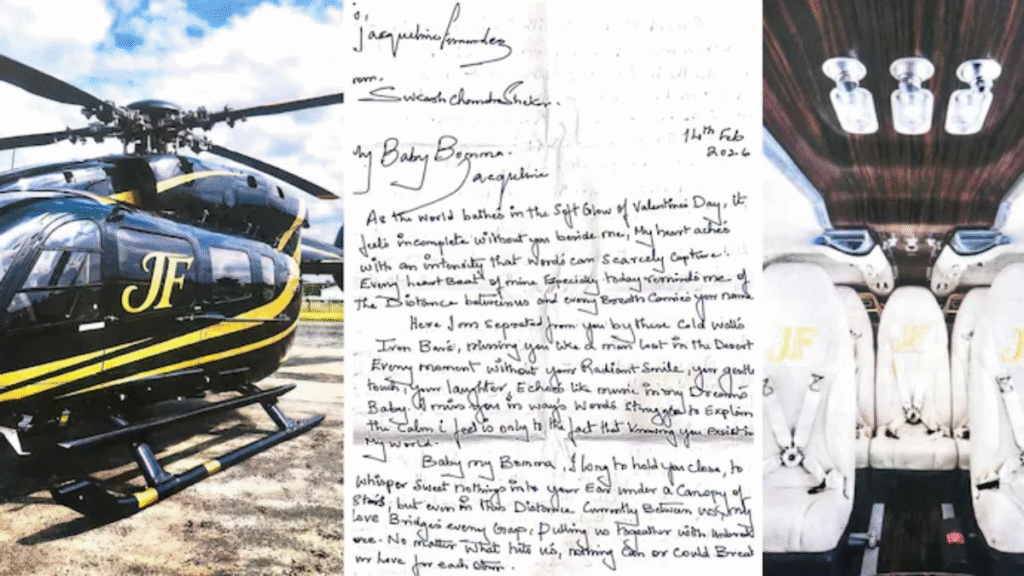 JF
o,
Jacqueline Fernandez
rom.
Sukash Chandra Shekar.
14th Feb
2026
My Baby Bomma.
Jacqueline
As the world bathes in the Soft Glow of Valentines Day, it
feels incomplete without you beside me, My heart aches
with an intensity that words can scarcely capture.
Every heart Beat of mine Especially today reminds me of
The Distance between us and every Breath Carries your name.
Here I am seprated from you by these Cold walls
Iron Bars, missing you like a man lost in the Desert
Every moment without your Radiant Smile, your gentle
touch, your laughter, Echoes like music in my Dreams
Baby. I miss you in ways words struggle to Explain
the Calm i feel is only to the fact that knowing you Exist in
My world.
Baby my Bomma, I long to hold you close, to
whisper sweet nothings into your Ear under a Canopy of
Stars, but even in this Distance Currently Between us, my
love Bridges every Gap, Pulling us together with
ence. No matter what hits us, nothing Can or could Break
we here for each other.
JF
JF
J